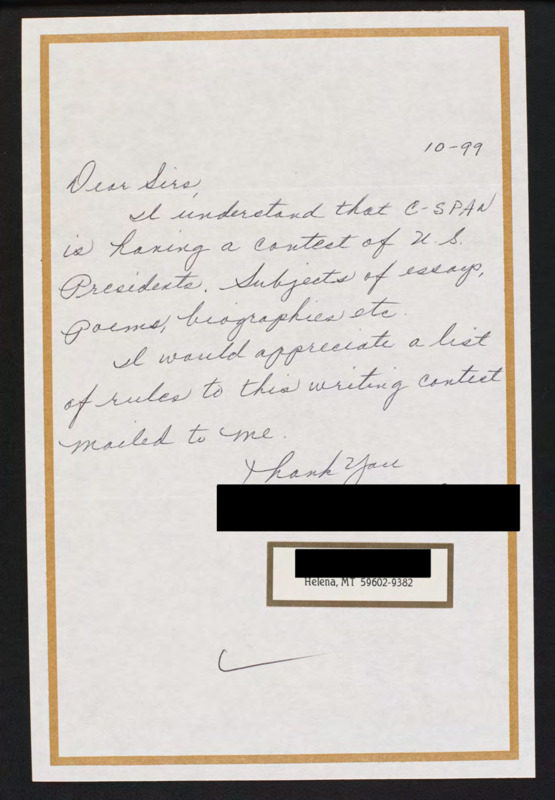 10-99
Dear Sirs,
I understand that C-SPAN
is having a contest of U.S.
Presidents. Subjects of essays,
Poems, biographies etc.
I would appreciate a list
of rules to this writing contest
mailed to me.
Thank You
Helena, MT 59602-9382